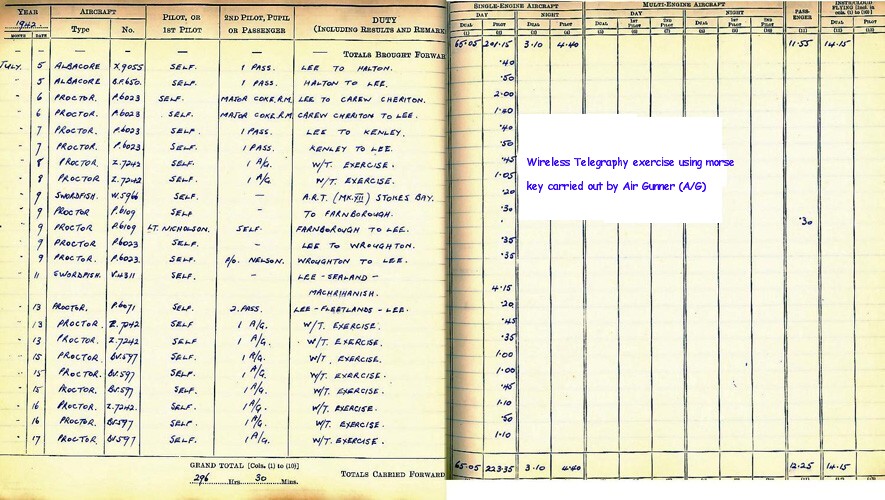 YEAR AIRCRAFT PILOT, OR 2ND PILOT, PUPIL DUTY SINGLE-ENGINE AIRCRAFT MULTI-ENGINE AIRCRAFT PASS-
1942 Type No. 1ST PILOT OR PASSENGER (INCLUDING RESULTS AND REMARK DAY NIGHT DAY NIGHT ENGER
MONTH DATE DUAL PILOT DUAL PILOT DUAL 1ST PILOT 2ND PILOT DUAL 1ST PILOT 2ND PILOT DUAL PILOT
(1) (2) (3) (4) (5) (6) (7) (8) (9) (10) (11) (12) (13)
— — — — — TOTALS BROUGHT FORWAR 65.05 201.15 3.10 4.40 11.55 14.15
JULY. 5 ALBACORE X.9055 SELF. 1 PASS. LEE TO HALTON. .40
" 5 ALBACORE B.F.650. SELF. 1 PASS. HALTON TO LEE. .50
" 6 PROCTOR. P.6023 SELF. MAJOR COKE.R.M. LEE TO CAREW CHERITON. 2.00
" 6 PROCTOR. P.6023 SELF. MAJOR COKE.R.M. CAREW CHERITON TO LEE.
" 7 PROCTOR. P.6023 SELF. 1 PASS. LEE TO KENLEY. .40
" 7 PROCTOR. P.6023 SELF. 1 PASS. KENLEY TO LEE. .50
" 8 PROCTOR. Z.7242 SELF. 1 A/G. W/T. EXERCISE. .45
" 8 PROCTOR. Z.7242 SELF. 1 A/G. W/T. EXERCISE. 1.05
" 9 SWORDFISH. W.5966 SELF. — A.R.T. (MK.XII) STOKES BAY. .20
" 9 PROCTOR P.6109 SELF — TO FARNBOROUGH. .30
" 9 PROCTOR. P.6109 LT. NICHOLSON. SELF. FARNBOROUGH TO LEE. .30
" 9 PROCTOR P.6023 SELF — LEE TO WROUGHTON. .35
" 9 PROCTOR. P.6023. SELF. NELSON. WROUGHTON TO LEE. .35
" 11 SWORDFISH. V.4311 SELF. — LEE - SEALAND -
MACHRIHANISH. 4.15
" 13 PROCTOR. P.6071 SELF. 2. PASS. LEE - FLEETLANDS - LEE. .20
" 13 PROCTOR. Z.7242 SELF 1 A/G. W/T. EXERCISE. .45
" 13 PROCTOR. Z.7242 SELF. 1 A/G. W/T. EXERCISE. .35
" 15 PROCTOR. BV.597 SELF. 1 A/G. W/T. EXERCISE. 1.00
" 15 PROCTOR. BV.597 SELF. 1 A/G. W/T. EXERCISE. 1.00
" 15 PROCTOR. BV.597 SELF. 1 A/G. W/T. EXERCISE. .45
" 16 PROCTOR. Z.7242. SELF. 1 A/G. W/T. EXERCISE. 1.10
" 16 PROCTOR. BV.597 SELF. 1 A/G. W/T. EXERCISE. .50
" 17 PROCTOR BV.597 SELF. 1 A/G. W/T. EXERCISE. 1.10
Wireless Telegraphy exercise using morse
key carried out by Air Gunner (A/G)
GRAND TOTAL [Cols. (1) to (10)]
296 Hrs. 30 Mins. TOTALS CARRIED FORWARD 65.05 223.35 3.10 4.40 12.25 14.15